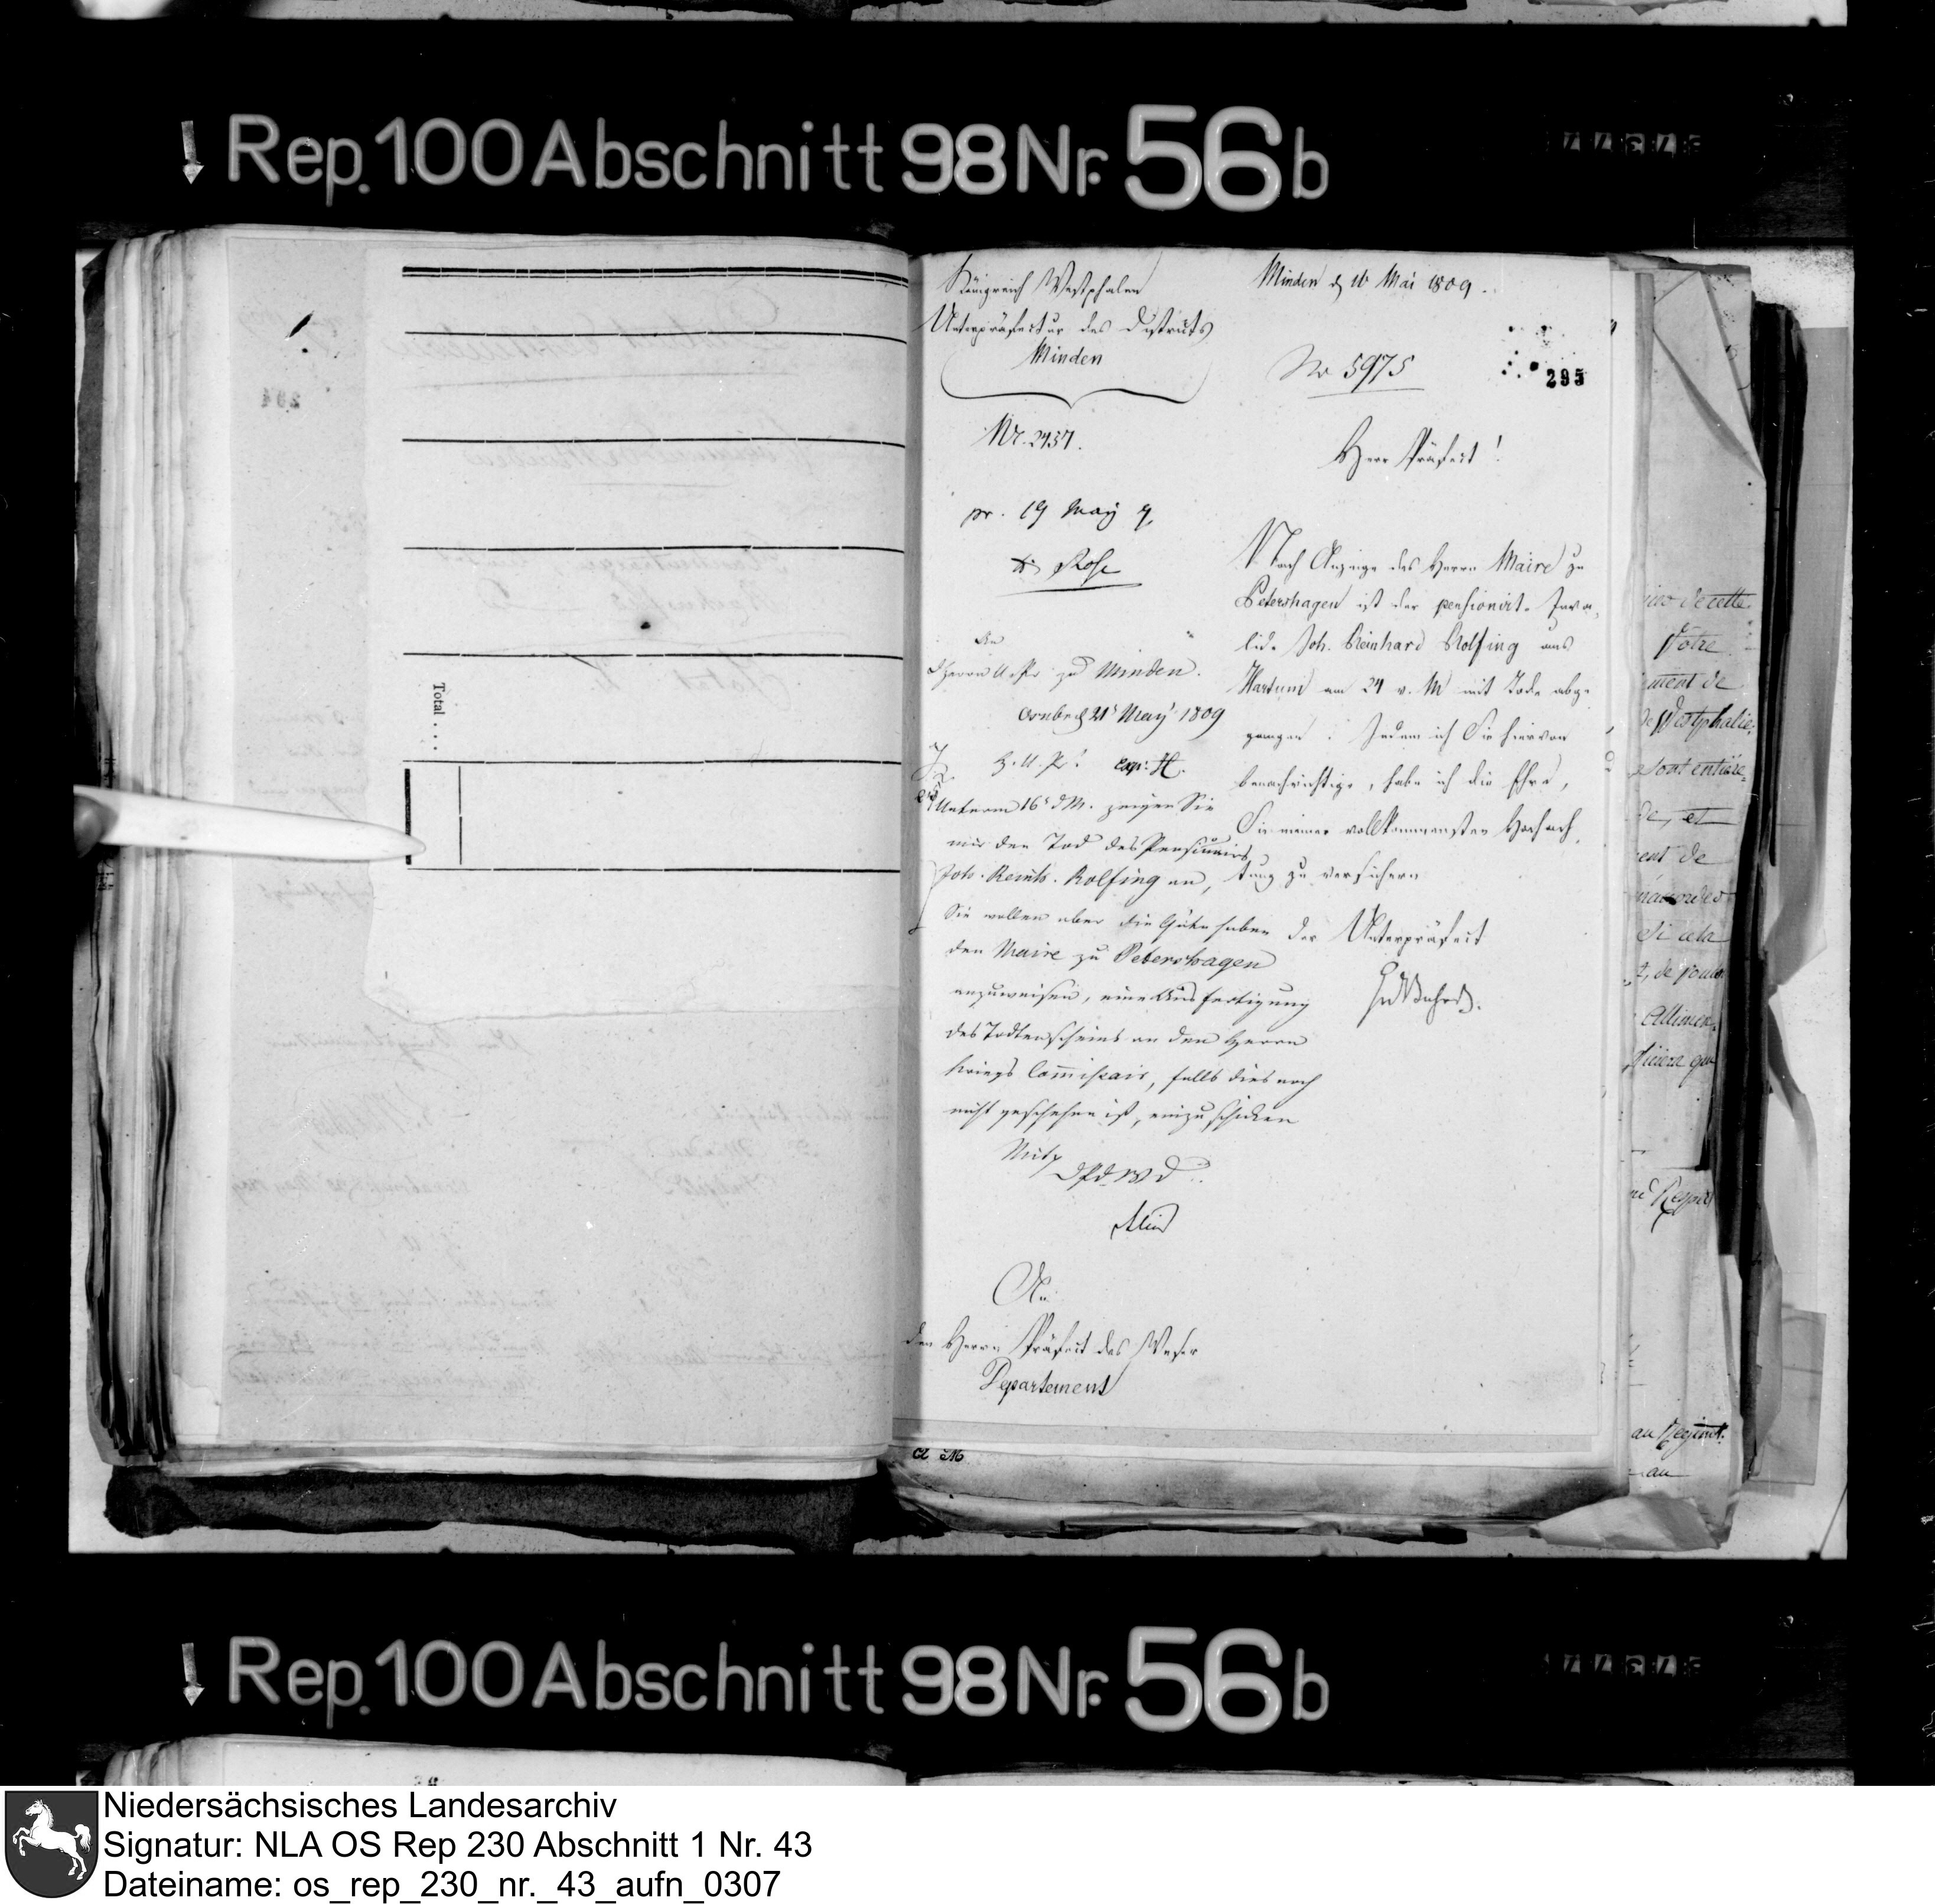 Rep. 100 Abschnitt 98 Nr. 56 b
Total . . . .
Königreich Westphalen
Unterpräfectur des Districts
Minden
Nr. 2437.
pr. 19 May 9.
Rose
An
Herrn U.Pr. zu Minden.
Osnbrck 21t May 1809
H. U. P.! exp. H.
Unterm 16t d M. zeigen Sie
mir den Tod des Pensionairs
Joh. Reinh. Rolfing an,
Sie wollen aber die Güte haben
den Maire zu Petershagen
anzuweisen, eine Ausfertigung
des Todtenscheins an den Herrn
Kriegs Commissair, falls dies noch
nicht geschehen ist, einzuschicken
An
den Herrn Präfect des Weser
Departement
Minden d 16 Mai 1809.
No 5975
295
Herr Präfect!
Nach Anzeige des Herrn Maire zu
Petershagen ist der pensionirte Inva-
lide Joh. Reinhard Rolfing aus
Hartum am 24 v. M mit Tode abge-
gangen. Indem ich Sie hiervon
benachrichtige, habe ich die Ehre,
Sie meiner vollkommensten Hochach-
tung zu versichern
der Unterpräfect
Cl M
de cette
Votre
ment de
de Westphalie
sont entière-
de, et
ent de
Si cela
au Regimt.
au
Rep. 100 Abschnitt 98 Nr. 56 b
Niedersächsisches Landesarchiv
Signatur: NLA OS Rep 230 Abschnitt 1 Nr. 43
Dateiname: os_rep_230_nr._43_aufn_0307